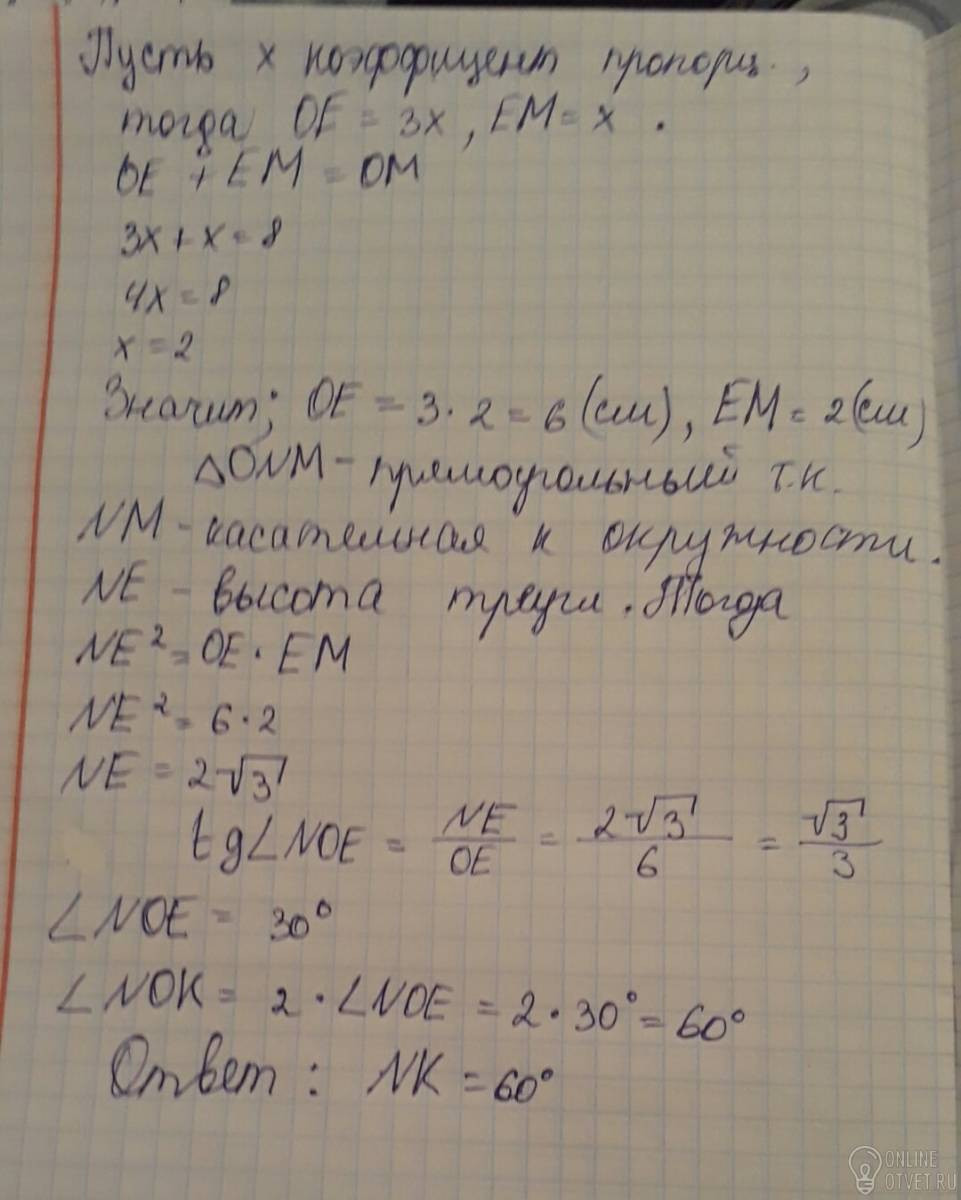 Пусть x коэффицент пропорц.,
тогда OE = 3x, EM = x.
OE + EM = OM
3x + x = 8
4x = 8
x = 2
Значит; OE = 3 · 2 = 6 (см), EM = 2 (см)
△ONM – прямоугольный т.к.
NM – касательная к окружности.
NE – высота треугл. Тогда
NE² = OE · EM
NE² = 6 · 2
NE = 2√3
tg∠NOE = NE/OE = 2√3/6 = √3/3
∠NOE = 30°
∠NOK = 2 · ∠NOE = 2 · 30° = 60°
Ответ: NK = 60°
ONLINE
OTVET.RU